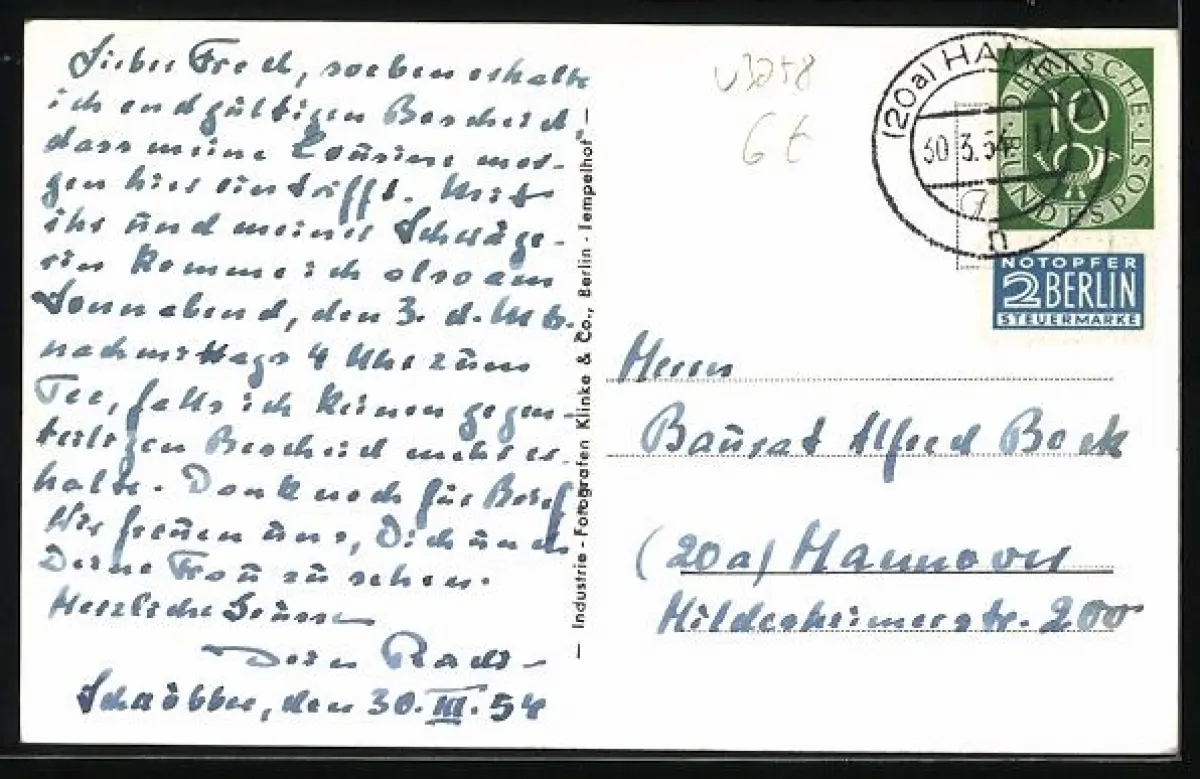 Lieber Fred, soeben erhalte
ich endgültigen Bescheid,
dass meine Cousine mor-
gen hier eintrifft. Mit
ihr und meiner Schwäge-
rin komme ich also am
Sonnabend, den 3. d. Mts.
nachmittags 4 Uhr zum
Tee, falls ich keinen gegen-
teiligen Bescheid mehr er-
halte. Dank noch für Brief.
Wir freuen uns, Dich und
Deine Frau zu sehen.
Herzliche Grüsse
Dein
den 30. III. 54
— Industrie-Fotografen Klinke & Co., Berlin-Tempelhof —
v3258
6 t
(20a) HAMELN
30.3.54
DEUTSCHE BUNDESPOST
10
NOTOPFER
2 BERLIN
STEUERMARKE
Herrn
Baurat Alfred Bock
(20a) Hannover
Hildesheimerstr. 200